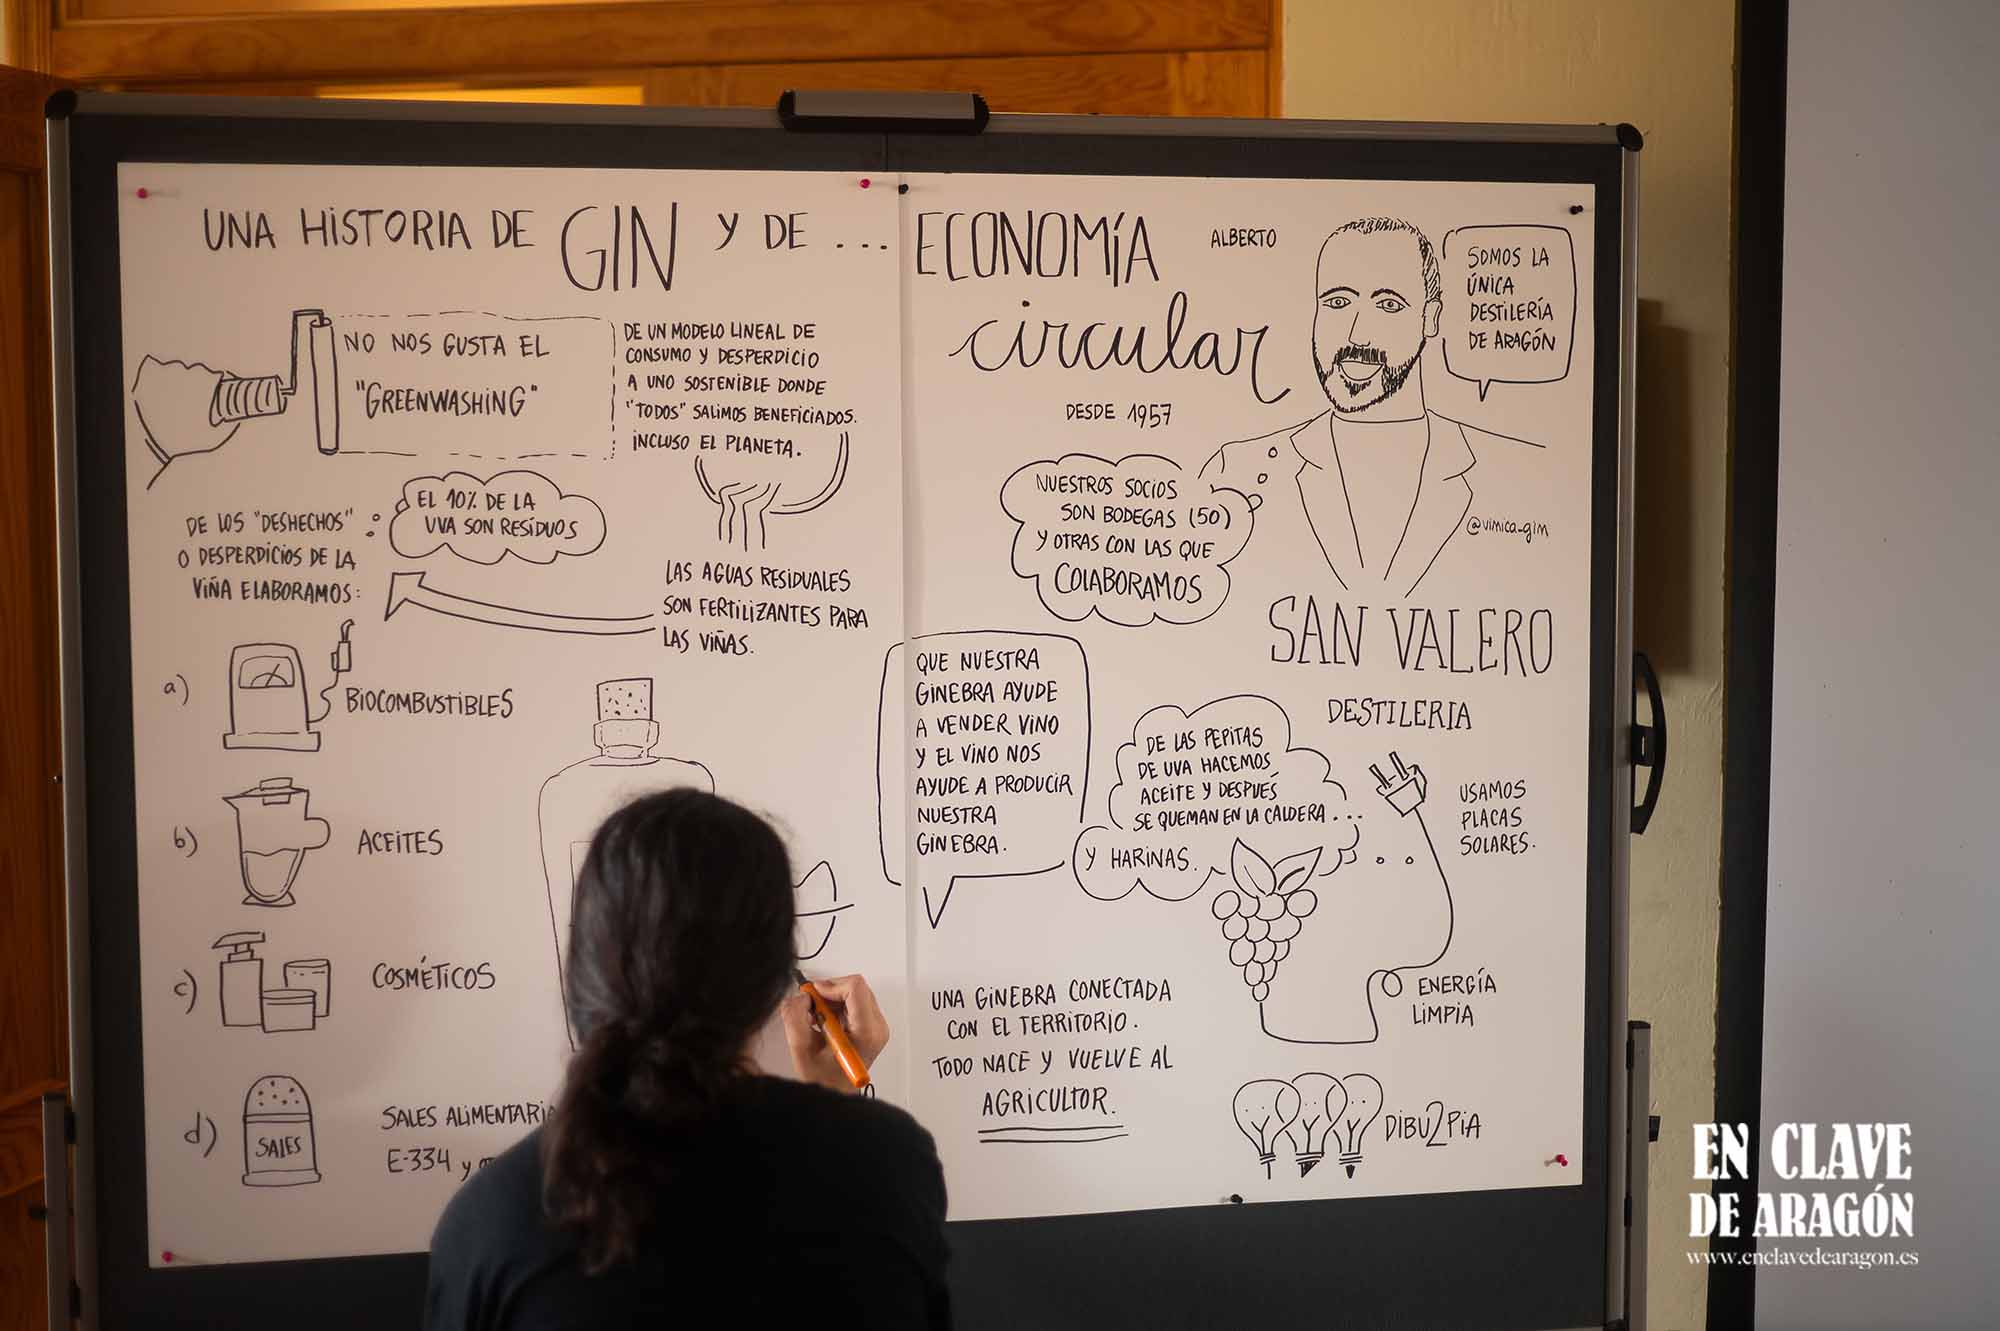 UNA HISTORIA DE GIN Y DE ... ECONOMÍA
circular
DESDE 1957
ALBERTO
SOMOS LA
ÚNICA
DESTILERÍA
DE ARAGÓN
NO NOS GUSTA EL
"GREENWASHING"
DE UN MODELO LINEAL DE
CONSUMO Y DESPERDICIO
A UNO SOSTENIBLE DONDE
"TODOS" SALIMOS BENEFICIADOS.
INCLUSO EL PLANETA.
EL 10% DE LA
UVA SON RESIDUOS
DE LOS "DESHECHOS"
O DESPERDICIOS DE LA
VIÑA ELABORAMOS:
LAS AGUAS RESIDUALES
SON FERTILIZANTES PARA
LAS VIÑAS.
a) BIOCOMBUSTIBLES
b) ACEITES
c) COSMÉTICOS
d) SALES
SALES ALIMENTARIA
E-334 y
NUESTROS SOCIOS
SON BODEGAS (50)
Y OTRAS CON LAS QUE
COLABORAMOS
@vimica_gin
SAN VALERO
DESTILERIA
QUE NUESTRA
GINEBRA AYUDE
A VENDER VINO
Y EL VINO NOS
AYUDE A PRODUCIR
NUESTRA
GINEBRA.
DE LAS PEPITAS
DE UVA HACEMOS
ACEITE Y DESPUÉS
SE QUEMAN EN LA CALDERA ...
Y HARINAS.
USAMOS
PLACAS
SOLARES.
ENERGÍA
LIMPIA
UNA GINEBRA CONECTADA
CON EL TERRITORIO.
TODO NACE Y VUELVE AL
AGRICULTOR.
DIBU2PIA
EN CLAVE
DE ARAGÓN
www.enclavedearagon.es